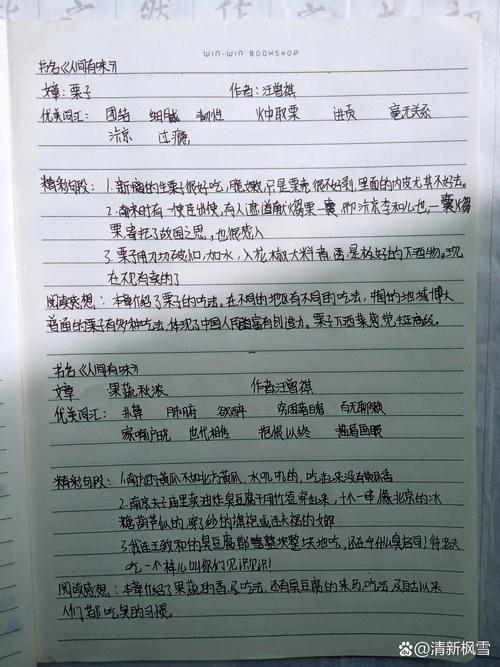 WIN-WIN BOOKSHOP
书名《人间有味》
文章：栗子 作者：汪曾祺
优美词汇： 团结 细腻 韧性 火中取栗 进贡 毫无关系
汴京 过瘾
精彩句段：1.新摘的生栗子很好吃，脆嫩，只是栗壳很不好剥，里面的内皮尤其不好去。
2.南宋时有一使臣出使，有人道献爆栗一囊，即汴京李和儿也，一囊爆
栗寄托了故国之思，也很感人
3.栗子用刀切破口，加水，入花椒大料煮透，是极好的下酒物。现
在不见有卖的了
阅读感想：本章介绍了栗子的吃法。在不同的地区有不同的吃法，中国的地域博大
普通的栗子有好种吃法，体现了中国人民的富有创造力。栗子下酒菜感觉挺高级。
书名《人间有味》
文章 果蔬秋浓 作者汪曾祺
优美词汇： 肺腑 欲醉 百无聊赖
家喻户晓 世代相传 抱恨以终
精彩句段：1.南方的黄瓜不如北方黄瓜，水叽叽的，吃起来没有黄瓜香
2.南京夫子庙里卖油炸臭豆腐干用竹签穿起来，十个一串，像北京的冰
糖葫芦似的，穿了纱的旗袍或连衣裙的女郎
3.我连王致和的臭豆腐都整块整块地吃，还在乎什么臭苋菜！待老夫
吃一个样儿叫你们见识见识！
阅读感想：本章介绍了果蔬的香及吃法，还有臭豆腐的来历、吃法，及自古以来
人们都吃臭的习惯。
百家号/清新枫雪